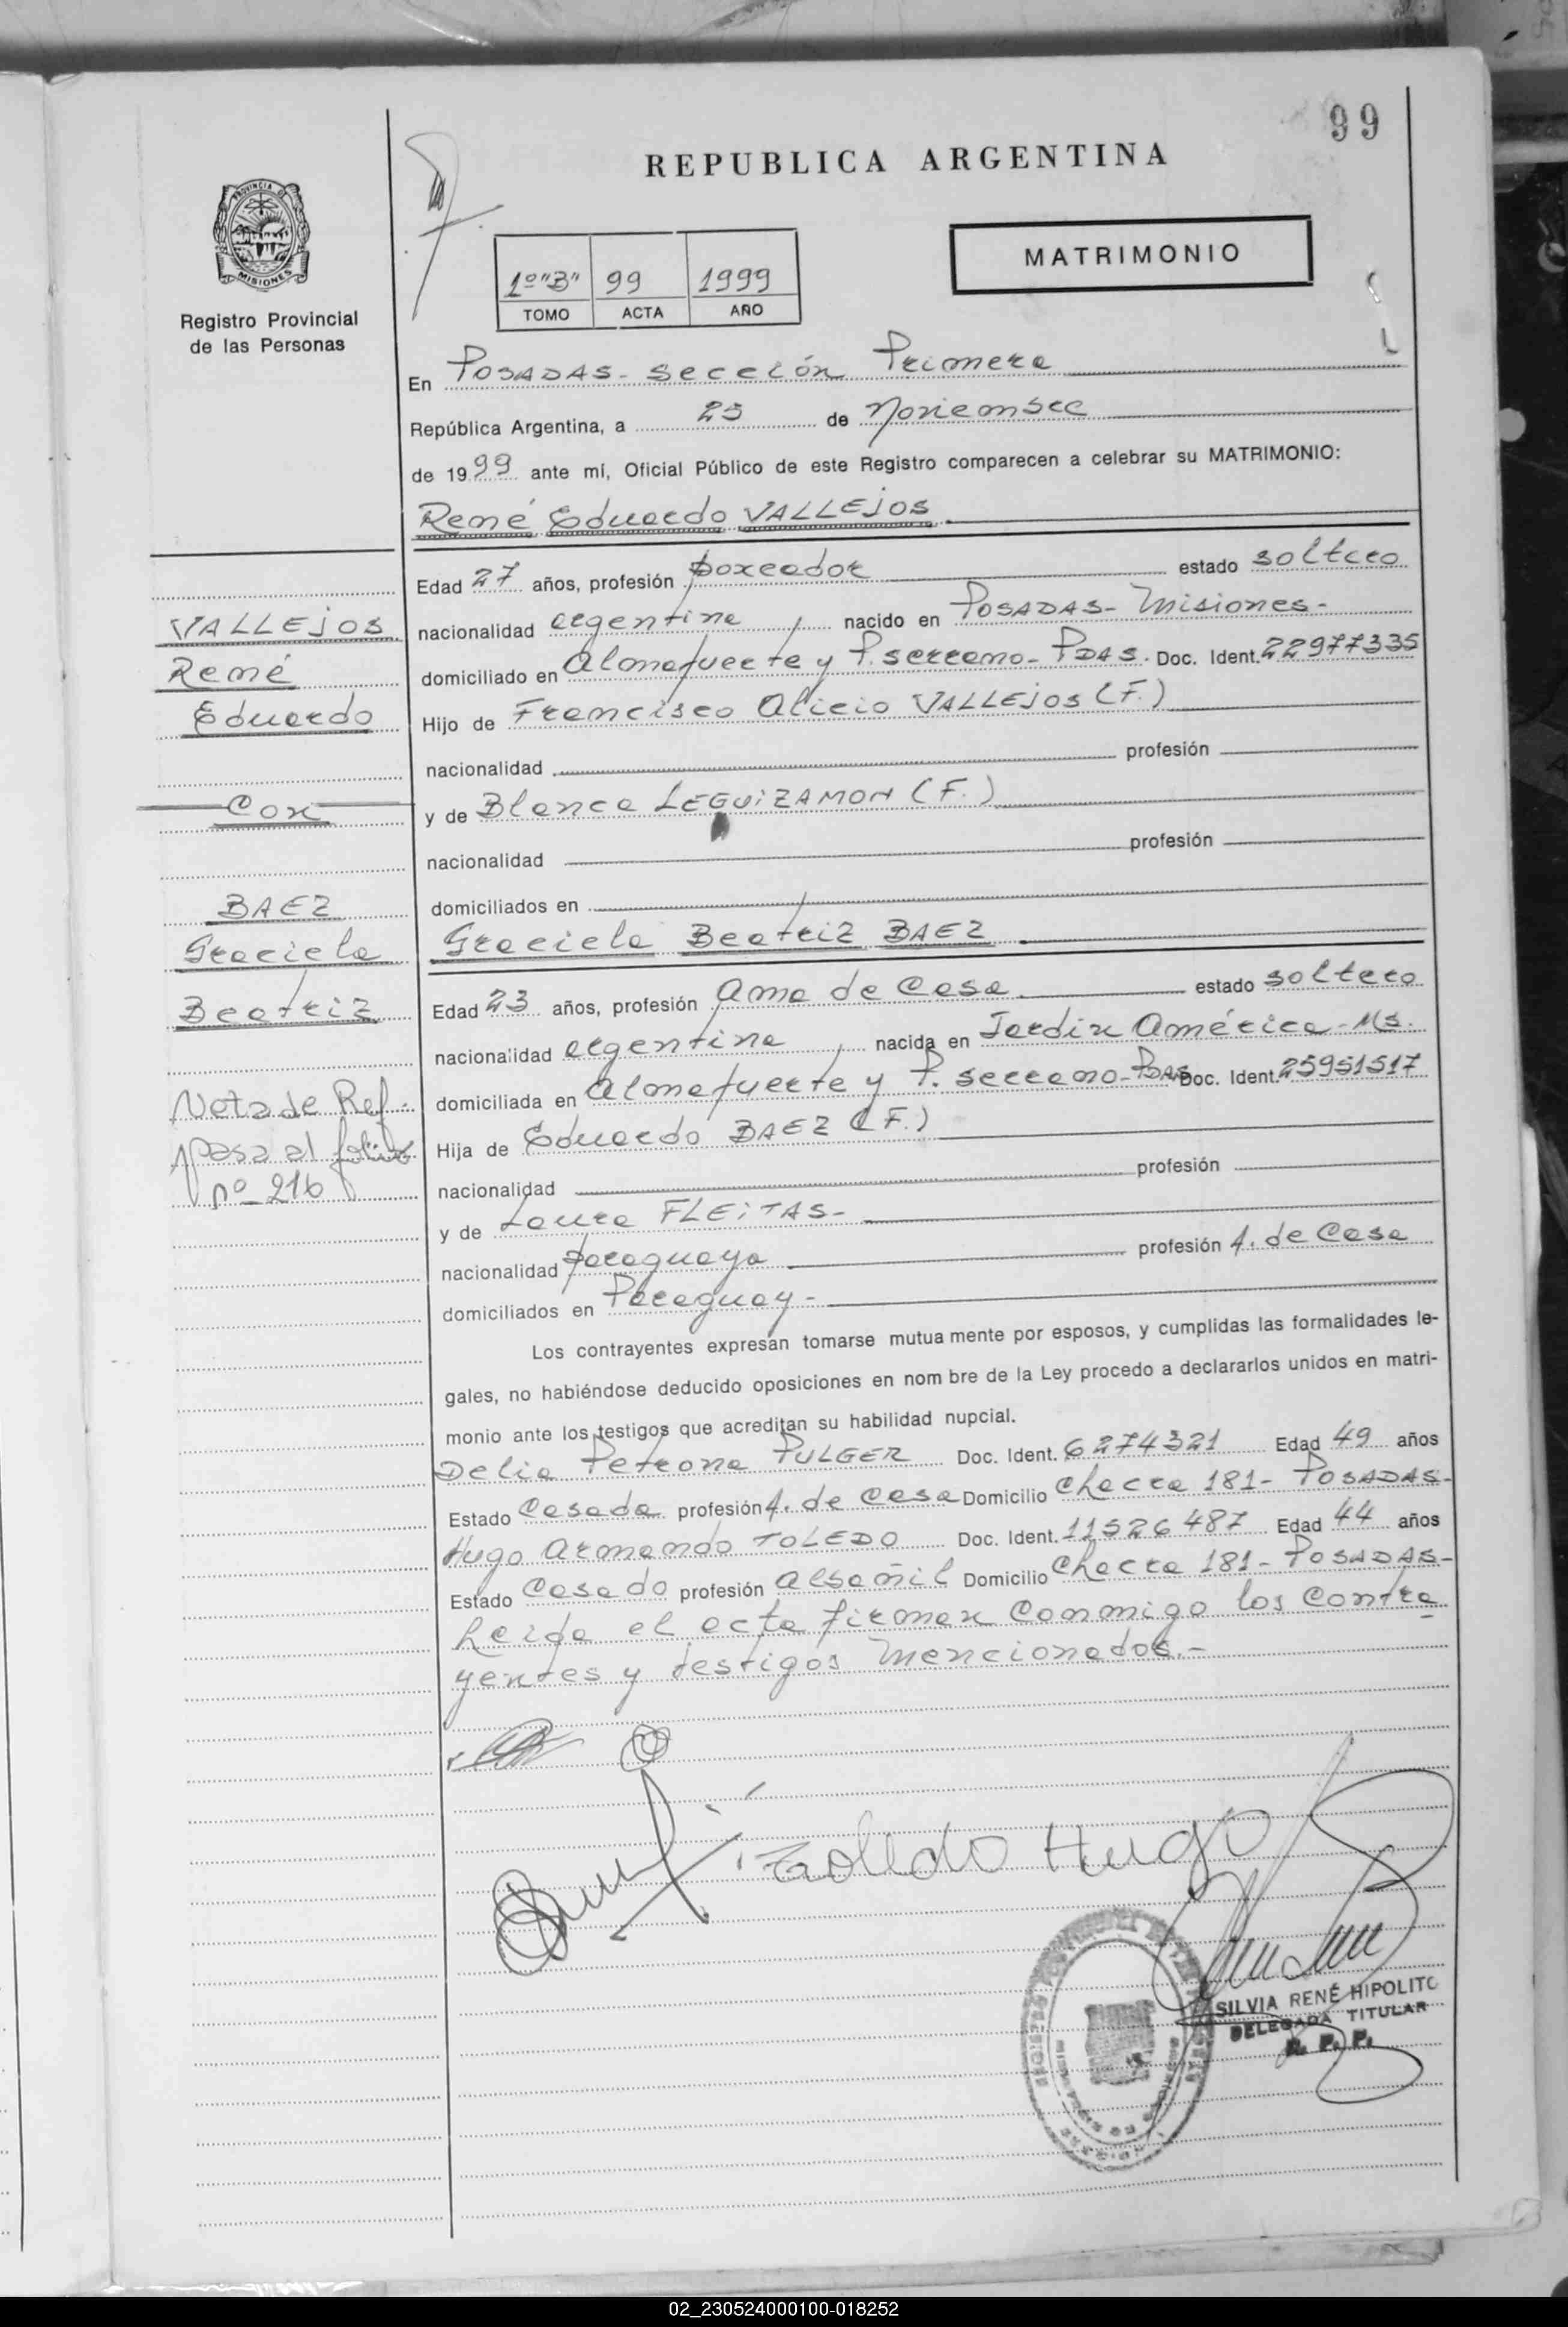 99
REPUBLICA ARGENTINA
MATRIMONIO
1º "B" 99 1999
TOMO ACTA AÑO
PROVINCIA DE
MISIONES
Registro Provincial
de las Personas
En POSADAS - sección Primera
República Argentina, a 25 de Noviembre
de 1999 ante mí, Oficial Público de este Registro comparecen a celebrar su MATRIMONIO:
René Eduardo VALLEJOS
Edad 27 años, profesión boxeador estado soltero
nacionalidad argentina nacido en POSADAS - Misiones -
domiciliado en Almafuerte y P. serrano - PDAS. Doc. Ident. 22977335
Hijo de Francisco Alicio VALLEJOS (F.)
nacionalidad profesión
y de Blanca LEGUIZAMON (F.)
nacionalidad profesión
domiciliados en
Graciela Beatriz BAEZ
Edad 23 años, profesión Ama de Casa estado soltera
nacionalidad argentina nacida en Jardín América - Ms.
domiciliada en Almafuerte y P. serrano - PDAS Doc. Ident. 25951517
Hija de Eduardo BAEZ (F.)
nacionalidad profesión
y de Laura FLEITAS -
nacionalidad paraguaya profesión A. de Casa
domiciliados en Paraguay -
Los contrayentes expresan tomarse mutua mente por esposos, y cumplidas las formalidades le-
gales, no habiéndose deducido oposiciones en nom bre de la Ley procedo a declararlos unidos en matri-
monio ante los testigos que acreditan su habilidad nupcial.
Delia Petrona PULGER Doc. Ident. 6274321 Edad 49 años
Estado Casada profesión A. de Casa Domicilio Chacra 181 - POSADAS -
Hugo Armando TOLEDO Doc. Ident. 11526487 Edad 44 años
Estado Casado profesión Albañil Domicilio Chacra 181 - POSADAS -
Leída el acta firman conmigo los contra
yentes y testigos mencionados. -
VALLEJOS
René
Eduardo
Con
BAEZ
Graciela
Beatriz
Nota de Ref.
pasa al folio
nº 216
Toledo Hugo
SILVIA RENÉ HIPOLITO
DELEGADA TITULAR
R. P. P.
02_230524000100-018252